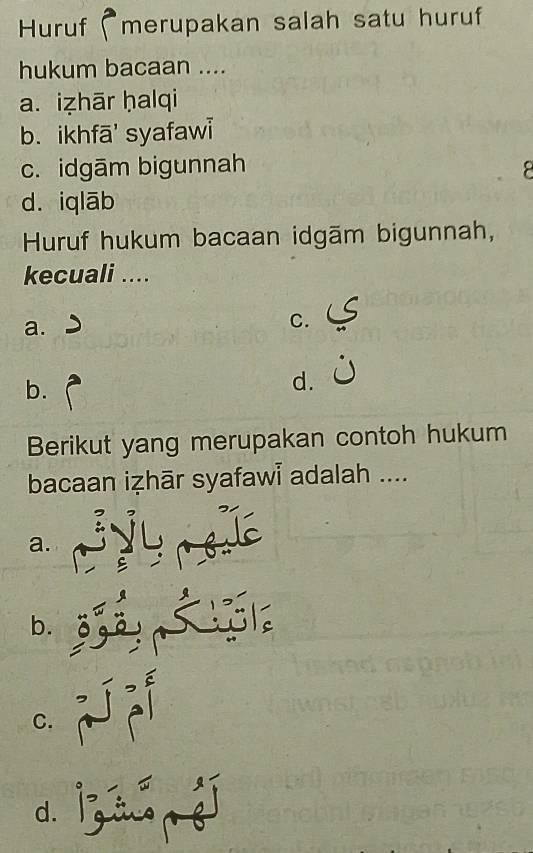 Huruf م merupakan salah satu huruf
hukum bacaan ....
a. iẓhār ḥalqi
b. ikhfā' syafawī
c. idgām bigunnah
d. iqlāb
8
Huruf hukum bacaan idgām bigunnah,
kecuali ....
a. د
c. ي
b. م
d. ن
Berikut yang merupakan contoh hukum
bacaan iẓhār syafawī adalah ....
a. عَلَيْهِمْ بِالْإِثْمِ
b. ءَاتَيْنٰكُمْ بِقُوَّةٍ
c. أَمْ لَمْ
d. لَهُمْ مَّشَوْا۟